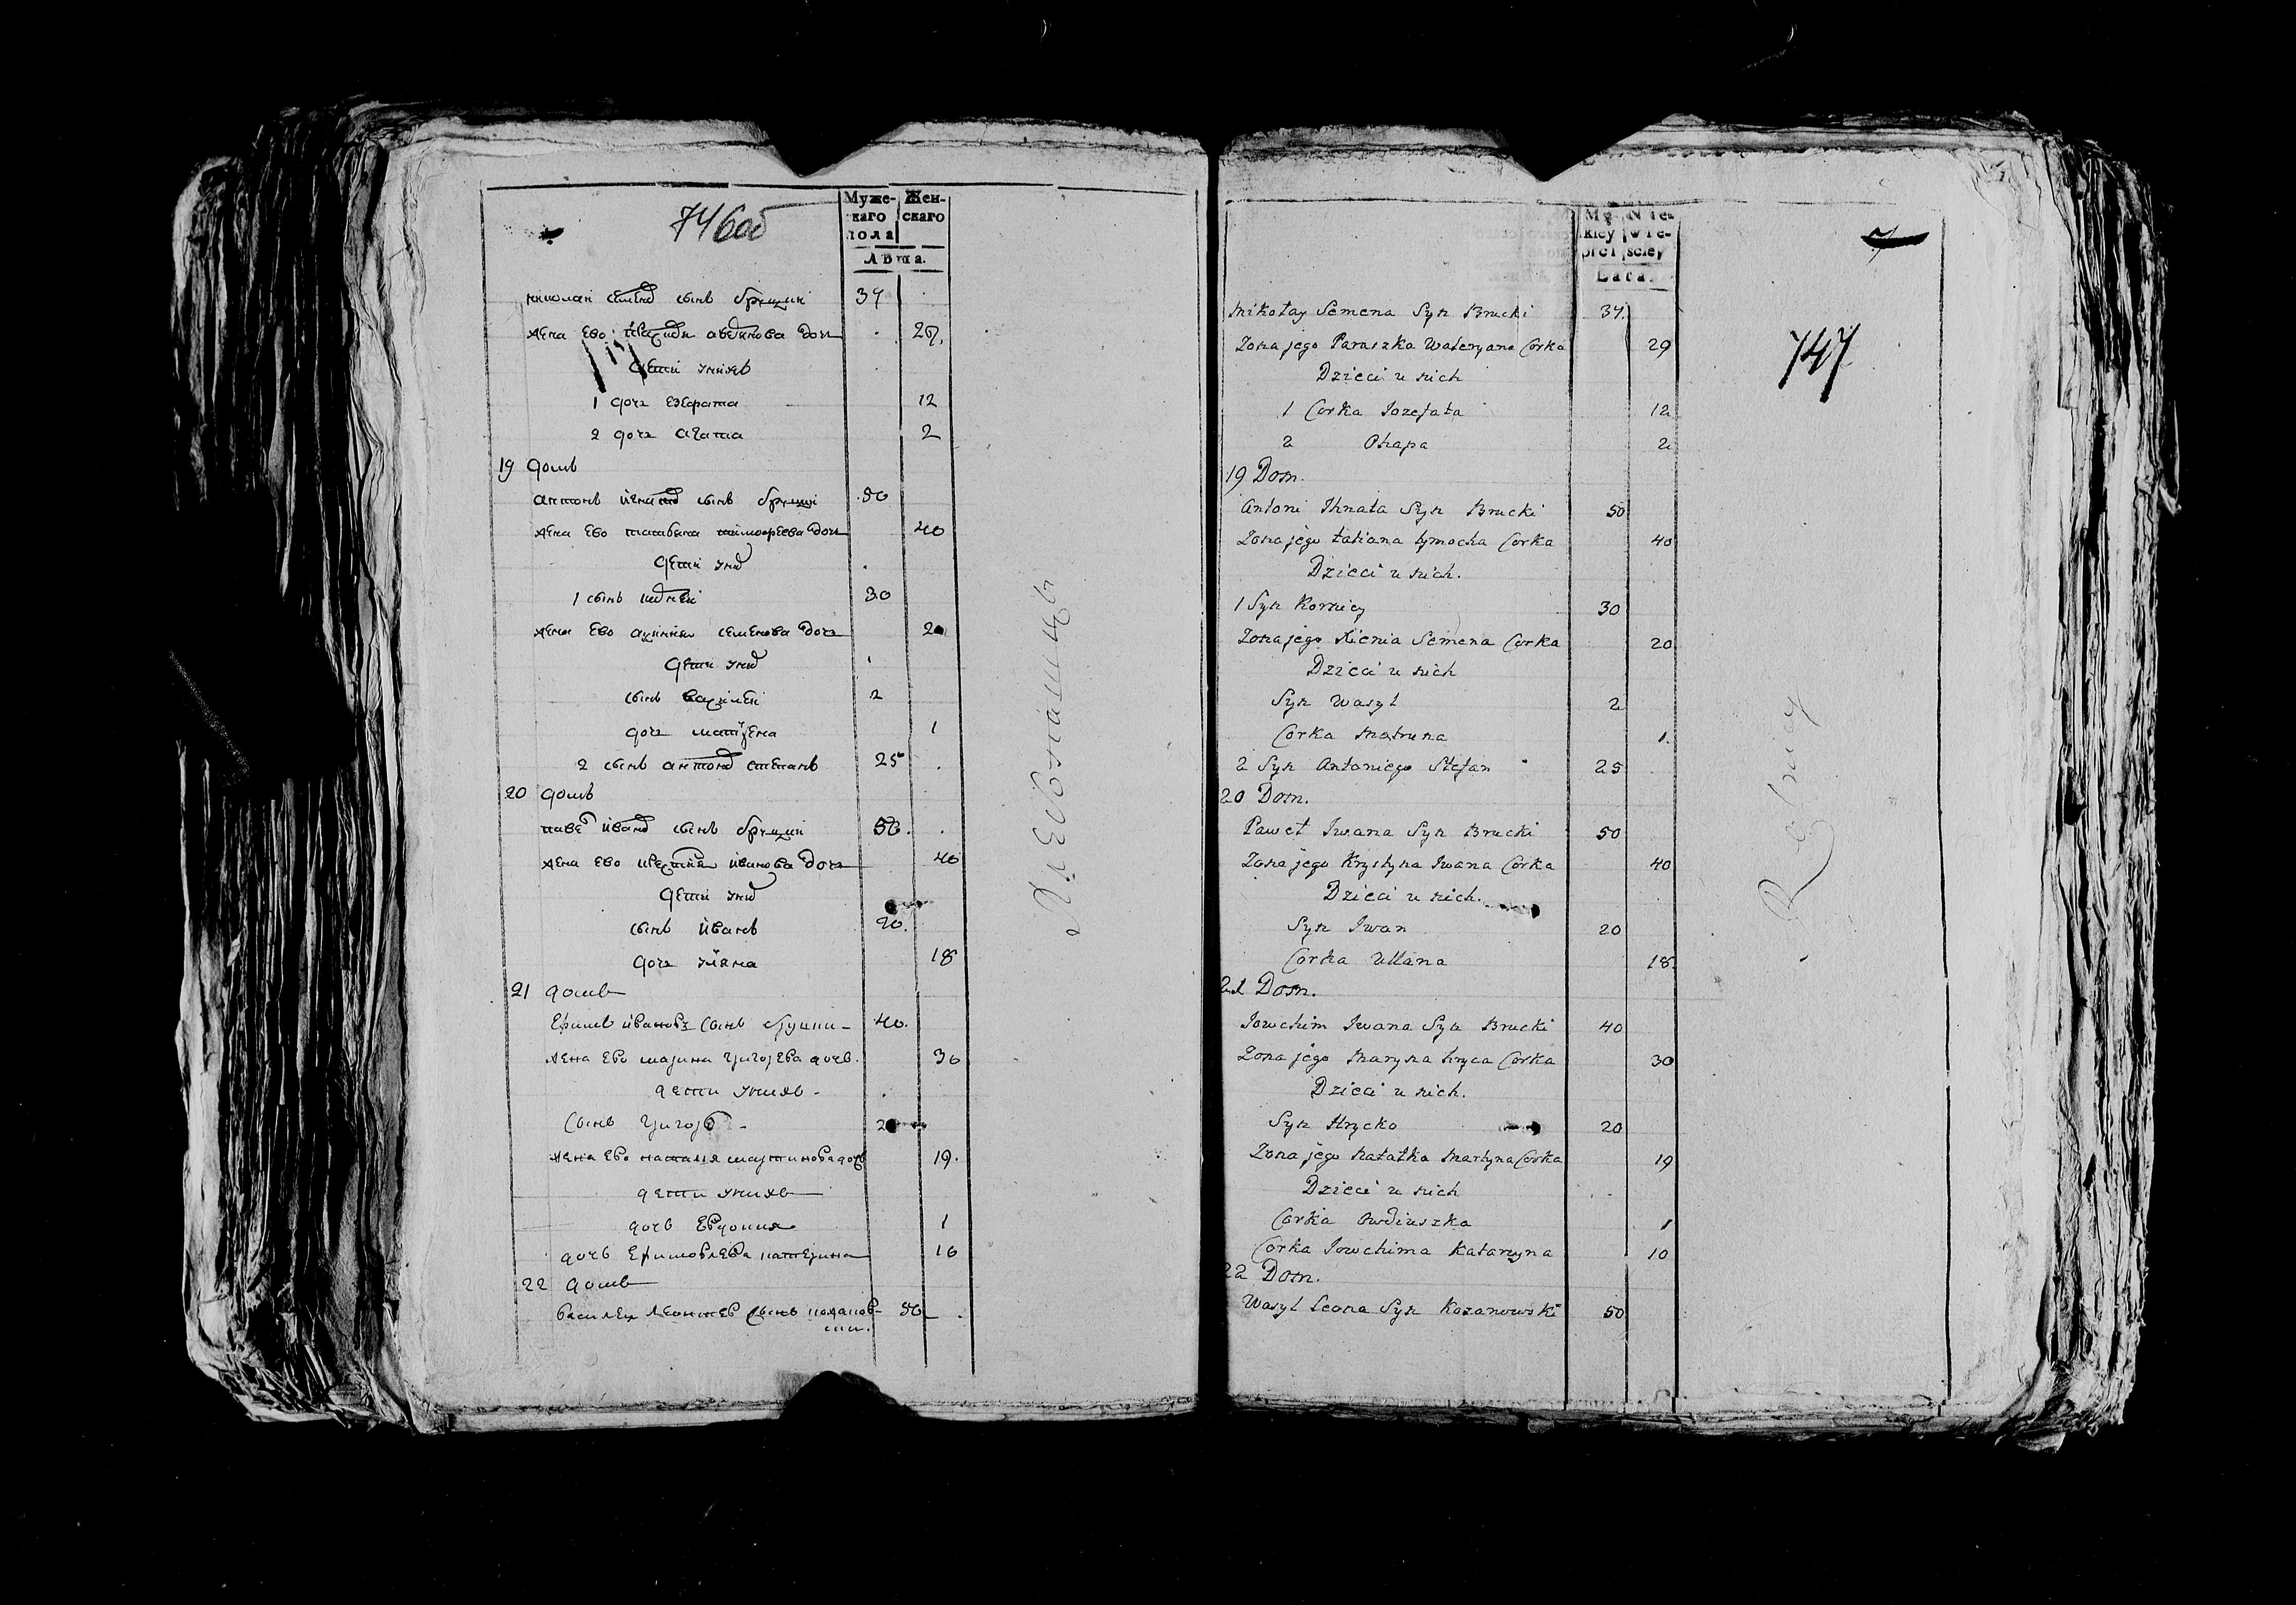 746об
Муже-
скаго
пола
Жен-
скаго
Лѣта.
николай семенов сынъ бруцкий 37
жена ево авдѣянова дочь
дети у нихъ
1 дочь езефата 12
2 дочь агата 2
19 домъ
антонъ игнатов сынъ бруцкий 50
жена ево татьяна тимофеева дочь 40
дети у них
1 сынъ корней 30
жена ево аксиния семенова дочь 20
дети у них
сынъ василей 2
дочь матрена 1
2 сынъ антонов степанъ 25
20 домъ
павел иванов сынъ бруцкий 50
жена ево иванова дочь 40
дети у них
сынъ иванъ 20
дочь уляна 18
21 домъ
ефимъ ивановъ сынъ бруцки 40
жена ево марина григорева дочь 30
дети у нихъ
сынъ григорей
жена ево наталя мартинова дочь 19
дети у нихъ
дочь евдокия 1
дочь катерина 10
22 домъ
василеи леонтев сынъ кожанов-
ски. 50
Лѣвонатцы
Męz-
kiey
płci
Nie-
wie-
sciey
Lata.
7
747
Mikołay Semena Syn Brucki 37
Zona jego Paraszka Waleryana Corka 29
Dzieci u nich
1 Corka Jozefata 12
2 Ohapa 2
19 Dom.
Antoni Ihnata Syn Brucki 50
Zona jego tatiana tymocha Corka 40
Dzieci u nich.
1 Syn Korniey 30
Zona jego Xienia Semena Corka 20
Dzieci u nich
Syn Wasyl 2
Corka Matruna 1.
2 Syn Antoniego Stefan 25
20 Dom.
Paweł Iwana Syn Brucki 50
Zona jego Krystyna Iwana Corka 40
Dzieci u nich.
Syn Iwan 20
Corka Ullana 18.
21 Dom.
Jowchim Iwana Syn Brucki 40
Zona jego Maryna hryca Corka 30
Dzieci u nich.
Syn Hrycko 20
Zona jego Natałka Martyna Corka 19
Dzieci u nich
Corka Owdiuszka 1
Corka Jowchima Katarzyna 10
22 Dom.
Wasyl Leona Syn Kozanowski 50